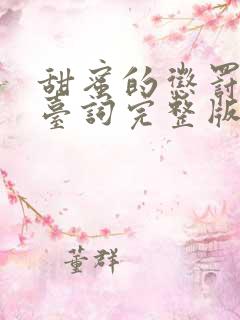 甜蜜的懲罰
臺詞完整版
董群